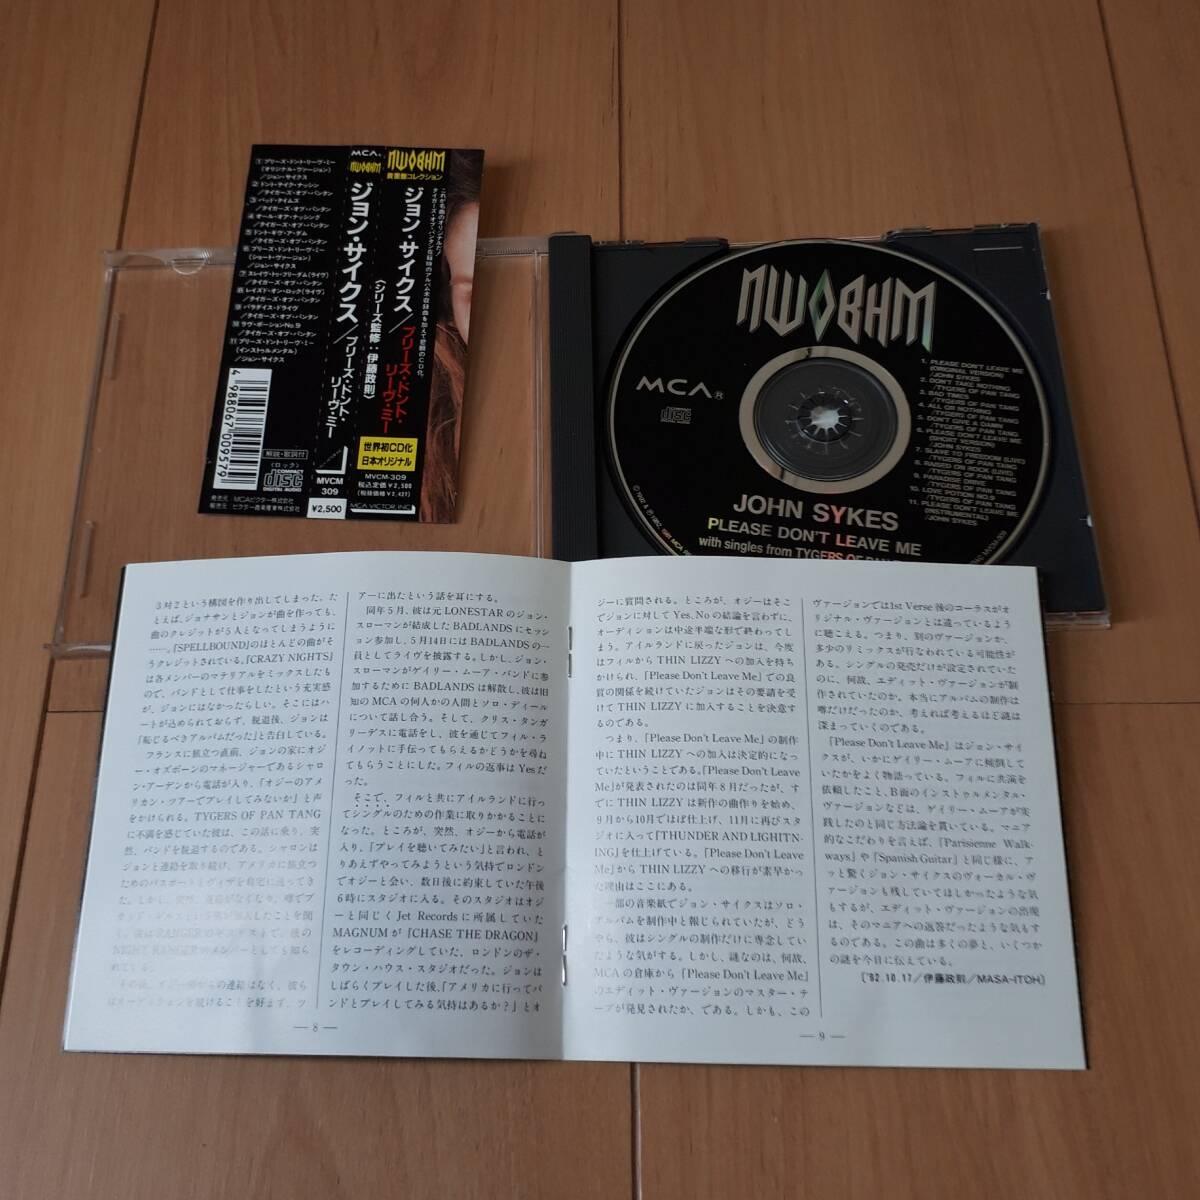 MCA
NWOBHM
NWOBHM
貴重盤コレクション
これが名曲のオリジナルだ!
タイガーズ・オブ・パンタン在籍時のアルバム未収録曲を加えて悲願のCD化。
ジョン・サイクス/
プリーズ・ドント・
リーヴ・ミー
〈シリーズ監修:伊藤政則〉
世界初CD化
日本オリジナル
MVCM-309
税込定価¥2,500
(税抜価格¥2,427)
MCA VICTOR, INC.
ジョン・サイクス/プリーズ・ドント・
リーヴ・ミー
MVCM
309
¥2,500
①プリーズ・ドント・リーヴ・ミー
(オリジナル・ヴァージョン)
/ジョン・サイクス
②ドント・テイク・ナッシン
/タイガーズ・オブ・パンタン
③バッド・タイムズ
/タイガーズ・オブ・パンタン
④オール・オア・ナッシング
/タイガーズ・オブ・パンタン
⑤ドント・ギヴ・ア・ダム
/タイガーズ・オブ・パンタン
⑥プリーズ・ドント・リーヴ・ミー
(ショート・ヴァージョン)
/ジョン・サイクス
⑦スレイヴ・トゥ・フリーダム(ライヴ)
/タイガーズ・オブ・パンタン
⑧レイズド・オン・ロック(ライヴ)
/タイガーズ・オブ・パンタン
⑨パラダイス・ドライヴ
/タイガーズ・オブ・パンタン
⑩ラヴ・ポーションNo.9
/タイガーズ・オブ・パンタン
⑪プリーズ・ドント・リーヴ・ミー
(インストゥルメンタル)
/ジョン・サイクス
4988067009579
解説・歌詞付
〈ロック〉
COMPACT
disc
DIGITAL AUDIO
発売元 MCAビクター株式会社
販売元 ビクター音楽産業株式会社
NWOBHM
MCA®
COMPACT
disc
DIGITAL AUDIO
1. PLEASE DON'T LEAVE ME
(ORIGINAL VERSION)
/JOHN SYKES
2. DON'T TAKE NOTHING
/TYGERS OF PAN TANG
3. BAD TIMES
/TYGERS OF PAN TANG
4. ALL OR NOTHING
/TYGERS OF PAN TANG
5. DON'T GIVE A DAMN
/TYGERS OF PAN TANG
6. PLEASE DON'T LEAVE ME
(SHORT VERSION)
/JOHN SYKES
7. SLAVE TO FREEDOM (LIVE)
/TYGERS OF PAN TANG
8. RAISED ON ROCK (LIVE)
/TYGERS OF PAN TANG
9. PARADISE DRIVE
/TYGERS OF PAN TANG
10. LOVE POTION NO.9
/TYGERS OF PAN TANG
11. PLEASE DON'T LEAVE ME
(INSTRUMENTAL)
/JOHN SYKES
JOHN SYKES
PLEASE DON'T LEAVE ME
with singles from TYGERS OF PAN
MVCM-309
3対2という構図を作り出してしまった。た
とえば、ジョナサンとジョンが曲を作っても、
曲のクレジットが5人となってしまうように
……。『SPELLBOUND』のほとんどの曲がそ
うクレジットされている。『CRAZY NIGHTS』
は各メンバーのマテリアルをミックスしたも
ので、バンドとして仕事をしたという充実感
が、ジョンにはなかったらしい。そこにはハ
ートが込められておらず、脱退後、ジョンは
「恥じるべきアルバムだった」と告白している。
フランスに旅立つ直前、ジョンの家にオジ
ー・オズボーンのマネージャーであるシャロ
ン・アーデンから電話が入り、「オジーのアメ
リカン・ツアーでプレイしてみないか」と声
をかけられる。TYGERS OF PAN TANG
に不満を感じていた彼は、この話に乗り、突
然、バンドを脱退するのである。シャロンは
ジョンと連絡を取り続け、アメリカに旅立つ
ためのパスポートとヴィザを自宅に送ってき
た。しかし、突然、連絡がなくなり、噂でブ
ラッド・ギルスという男が加入したことを聞
く。彼はRANGERのギタリストで、後の
NIGHT RANGERのメンバーとしても知ら
れている。
その後、オジー側からの連絡はなく、彼ら
はオーディションを続けるこ
アーに出たという話を耳にする。
同年5月、彼は元LONESTARのジョン・
スローマンが結成したBADLANDSにセッシ
ョン参加し、5月14日にはBADLANDSの一
員としてライヴを披露する。しかし、ジョン・
スローマンがゲイリー・ムーア・バンドに参
加するためにBADLANDSは解散し、彼は旧
知のMCAの何人かの人間とソロ・ディール
について話し合う。そして、クリス・タンガ
リーデスに電話をし、彼を通じてフィル・ラ
イノットに手伝ってもらえるかどうかを尋ね
てもらうことにした。フィルの返事はYesだ
った。
そこで、フィルと共にアイルランドに行っ
てシングルのための作業に取りかかることに
なった。ところが、突然、オジーから電話が
入り、「プレイを聴いてみたい」と言われ、と
りあえずやってみようという気持でロンドン
でオジーと会い、数日後に約束していた午後
6時にスタジオに入る。そのスタジオはオジ
ーと同じくJet Recordsに所属していた
MAGNUMが『CHASE THE DRAGON』
をレコーディングしていた、ロンドンのザ・
タウン・ハウス・スタジオだった。ジョンは
しばらくプレイした後、「アメリカに行ってバ
ンドとプレイしてみる気持はあるか?」とオ
— 8 —
ジーに質問される。ところが、オジーはそこ
でジョンに対してYes, Noの結論を言わずに、
オーディションは中途半端な形で終わってし
まう。アイルランドに戻ったジョンは、今度
はフィルからTHIN LIZZYへの加入を持ち
かけられ、「Please Don't Leave Me」での良
質の関係を続けていたジョンはその要請を受
けてTHIN LIZZYに加入することを決意す
るのである。
つまり、「Please Don't Leave Me」の制作
中にTHIN LIZZYへの加入は決定的になっ
ていたということである。「Please Don't Leave
Me」が発表されたのは同年8月だったが、す
でにTHIN LIZZYは新作の曲作りを始め、
9月から10月でほぼ仕上げ、11月に再びスタ
ジオに入って『THUNDER AND LIGHTN-
ING』を仕上げている。「Please Don't Leave
Me」からTHIN LIZZYへの移行が素早かっ
た理由はここにある。
一部の音楽紙でジョン・サイクスはソロ・
アルバムを制作中と報じられていたが、どう
やら、彼はシングルの制作だけに専念してい
たような気がする。しかし、謎なのは、何故、
MCAの倉庫から「Please Don't Leave Me」
のエディット・ヴァージョンのマスター・テ
ープが発見されたか、である。しかも、この
ヴァージョンでは1st Verse後のコーラスがオ
リジナル・ヴァージョンとは違っているよう
に聴こえる。つまり、別のヴァージョンか、
多少のリミックスが行なわれている可能性が
ある。シングルの発売だけが設定されていた
のに、何故、エディット・ヴァージョンが制
作されていたのか。本当にアルバムの制作は
噂だけだったのか、考えれば考えるほど謎は
深まっていくのである。
「Please Don't Leave Me」はジョン・サイ
クスが、いかにゲイリー・ムーアに傾倒して
いたかをよく物語っている。フィルに共演を
依頼したこと、B面のインストゥルメンタル・
ヴァージョンなどは、ゲイリー・ムーアが実
践したのと同じ方法論を貫いている。マニア
的なこだわりを言えば、「Parisienne Walk-
ways」や「Spanish Guitar」と同じ様に、ア
ッと驚くジョン・サイクスのヴォーカル・ヴ
ァージョンも残していてほしかったような気
もするが、エディット・ヴァージョンの出現
は、そのマニアへの返答だったような気もす
るのである。この曲は多くの夢と、いくつか
の謎を今日に伝えている。
['92.10.17/伊藤政則/MASA-ITOH]
— 9 —